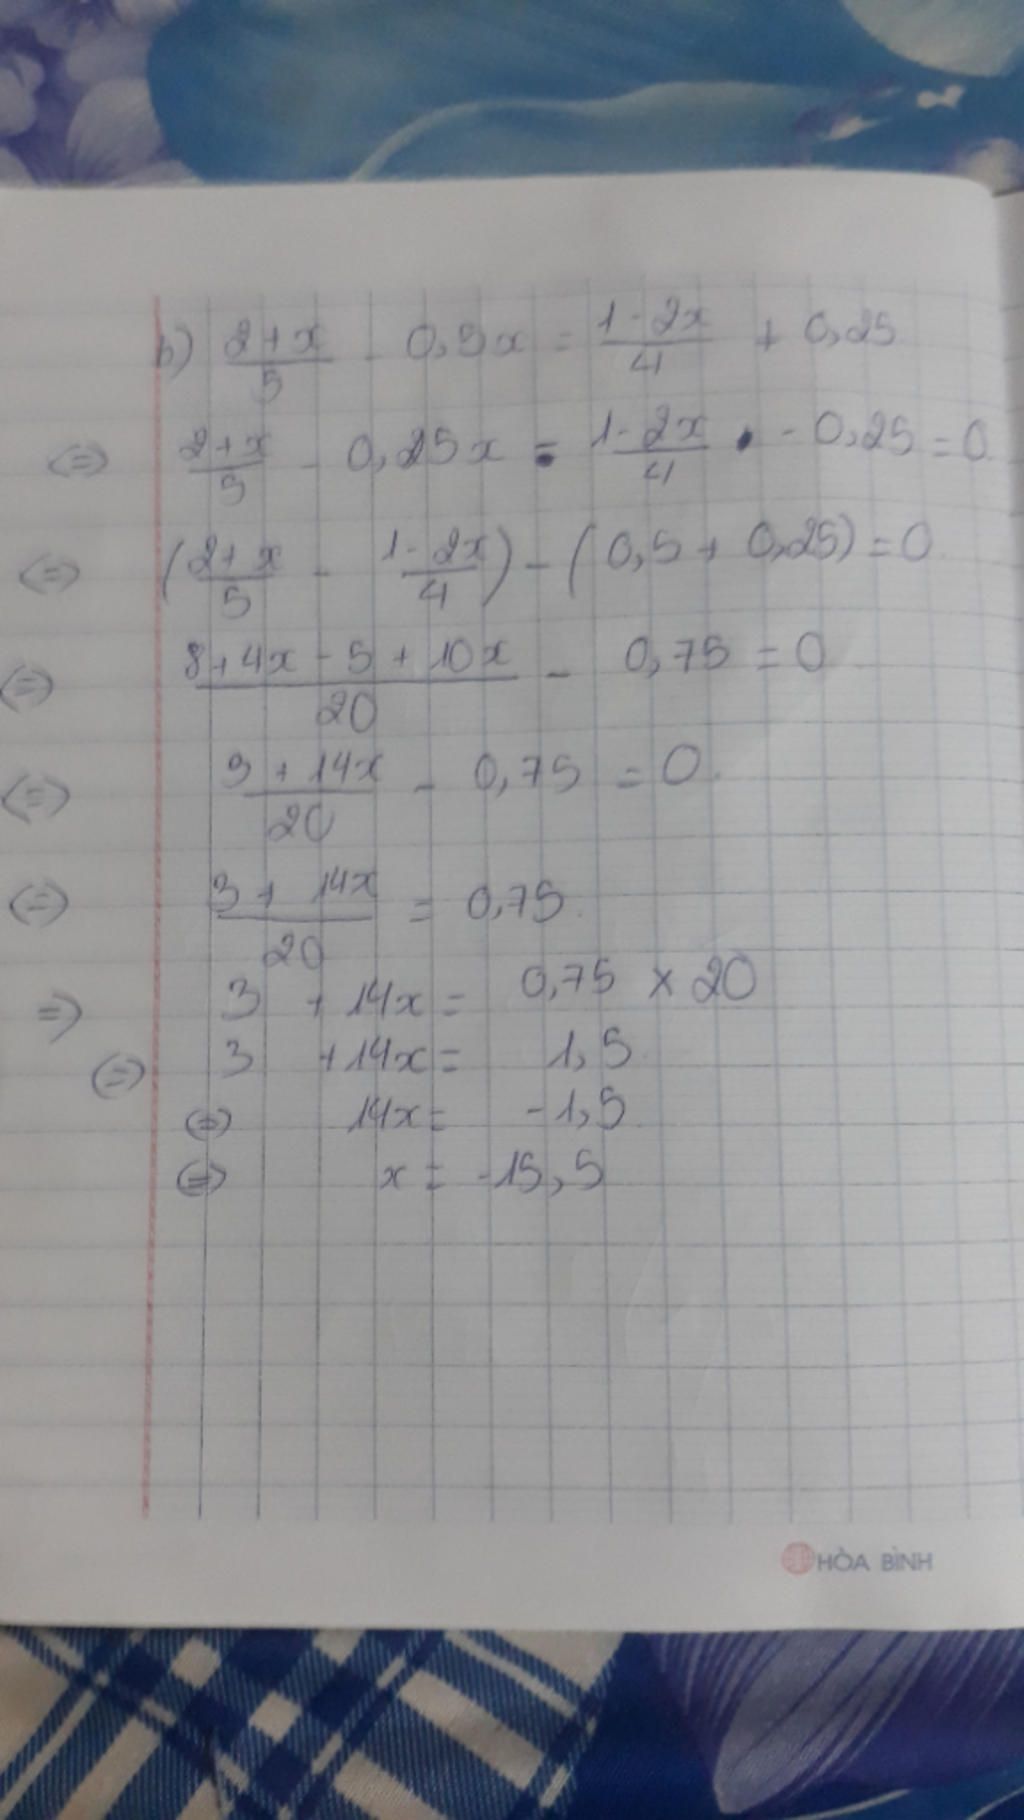 b) (2+x)/5 - 0,5x = (1-2x)/4 + 0,25
<=> (2+x)/5 - 0,25x = (1-2x)/4 • - 0,25 = 0
<=> ((2+x)/5 - (1-2x)/4) - (0,5 + 0,25) = 0
<=> (8+4x-5+10x)/20 - 0,75 = 0
<=> (3+14x)/20 - 0,75 = 0
<=> (3+14x)/20 = 0,75
=> 3 + 14x = 0,75 × 20
<=> 3 + 14x = 1,5
<=> 14x = -1,5
<=> x = -15,5
HÒA BÌNH